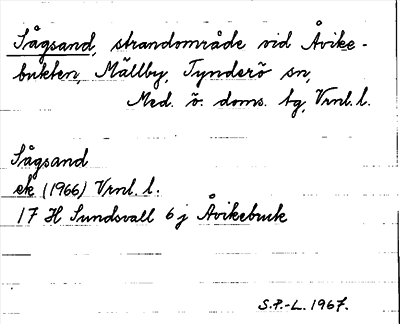 Sågsand, strandområde vid Åvike-
bukten, Mällby, Tynderö sn,
Med. ö. doms. tg, Vrnl. l.
Sågsand
ek (1966) Vrnl. l.
17 H Sundsvall 6 j Åvikebuk
S.P.-L. 1967.